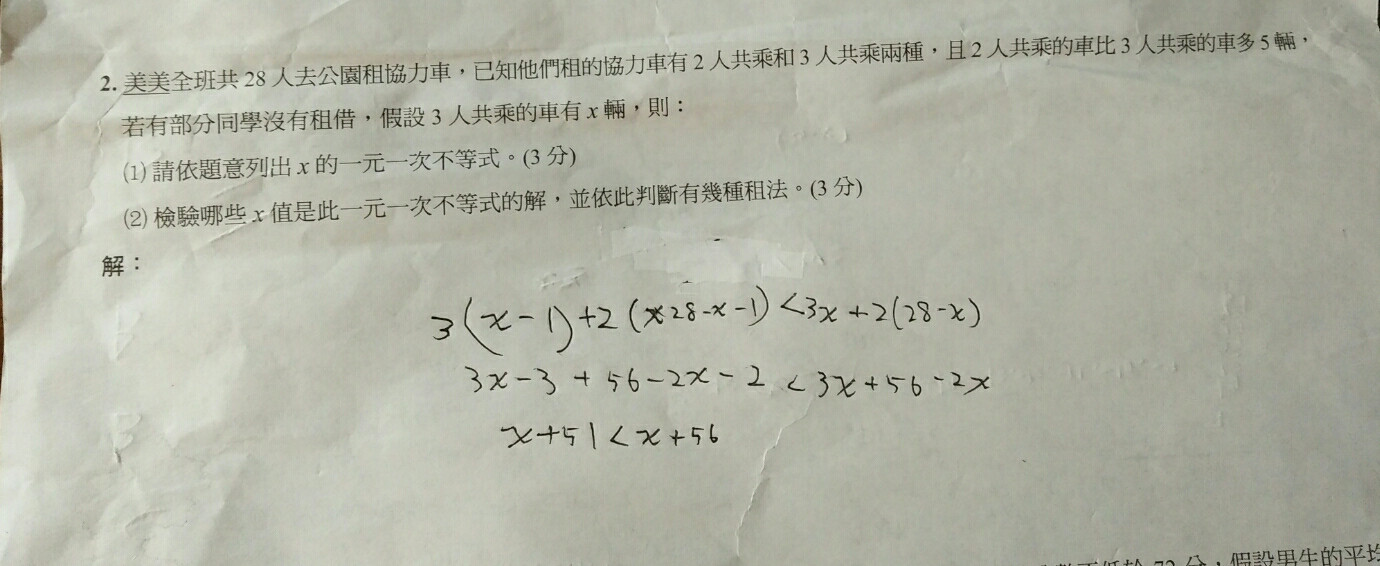 2. 美美全班共 28 人去公園租協力車，已知他們租的協力車有 2 人共乘和 3 人共乘兩種，且 2 人共乘的車比 3 人共乘的車多 5 輛，
若有部分同學沒有租借，假設 3 人共乘的車有 x 輛，則：
(1) 請依題意列出 x 的一元一次不等式。(3 分)
(2) 檢驗哪些 x 值是此一元一次不等式的解，並依此判斷有幾種租法。(3 分)
解：
3(x-1)+2(28-x-1)<3x+2(28-x)
3x-3+56-2x-2<3x+56-2x
x+51<x+56
72 分，假設男生的平均